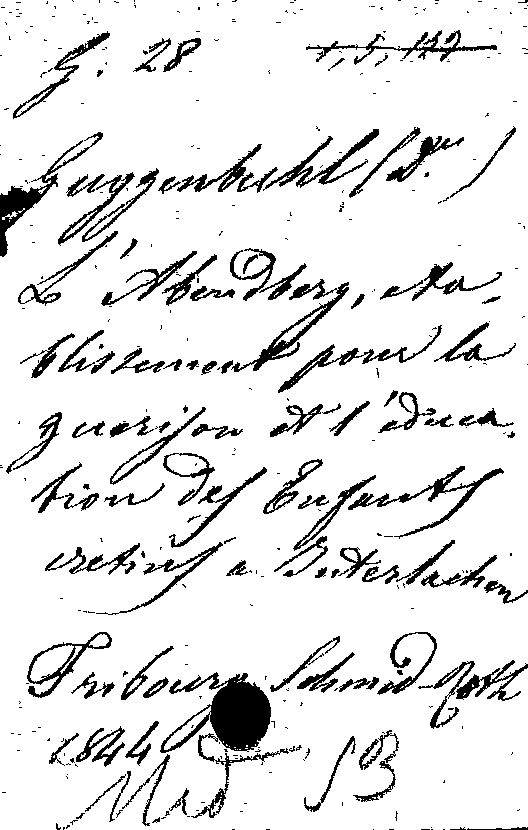 G. 28 1, 5, 127
Guggenbuhl (Dr.)
L'Abendberg, eta-
blissement pour la
guerison et l'éduca-
tion des Enfants
cretins a Interlachen
Fribourg Schmid-Roth
1844
Med SB